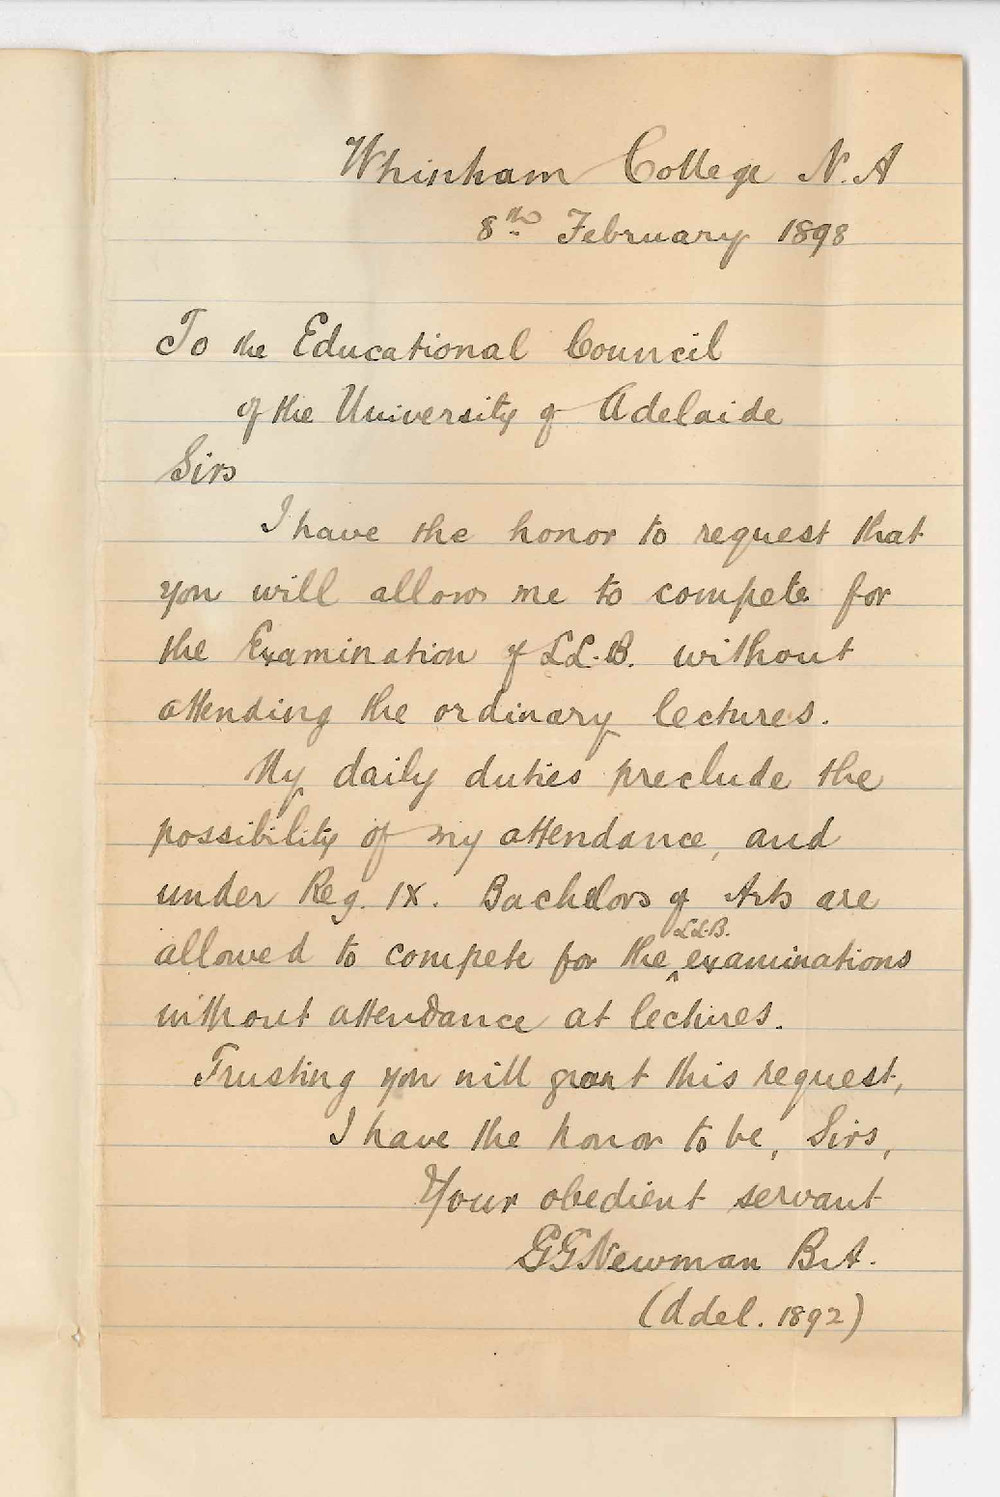 Whinham College N.A
8th February 1898
To the Educational Council
of the University of Adelaide
Sirs
I have the honor to request that
you will allow me to compete for
the Examination of LL.B. without
attending the ordinary lectures.
My daily duties preclude the
possibility of my attendance, and
under Reg. IX. Bachelors of Arts are
LL.B.
allowed to compete for the ^ examinations
without attendance at lectures.
Trusting you will grant this request,
I have the honor to be, Sirs,
Your obedient servant
GGNewman B.A.
(Adel. 1892)